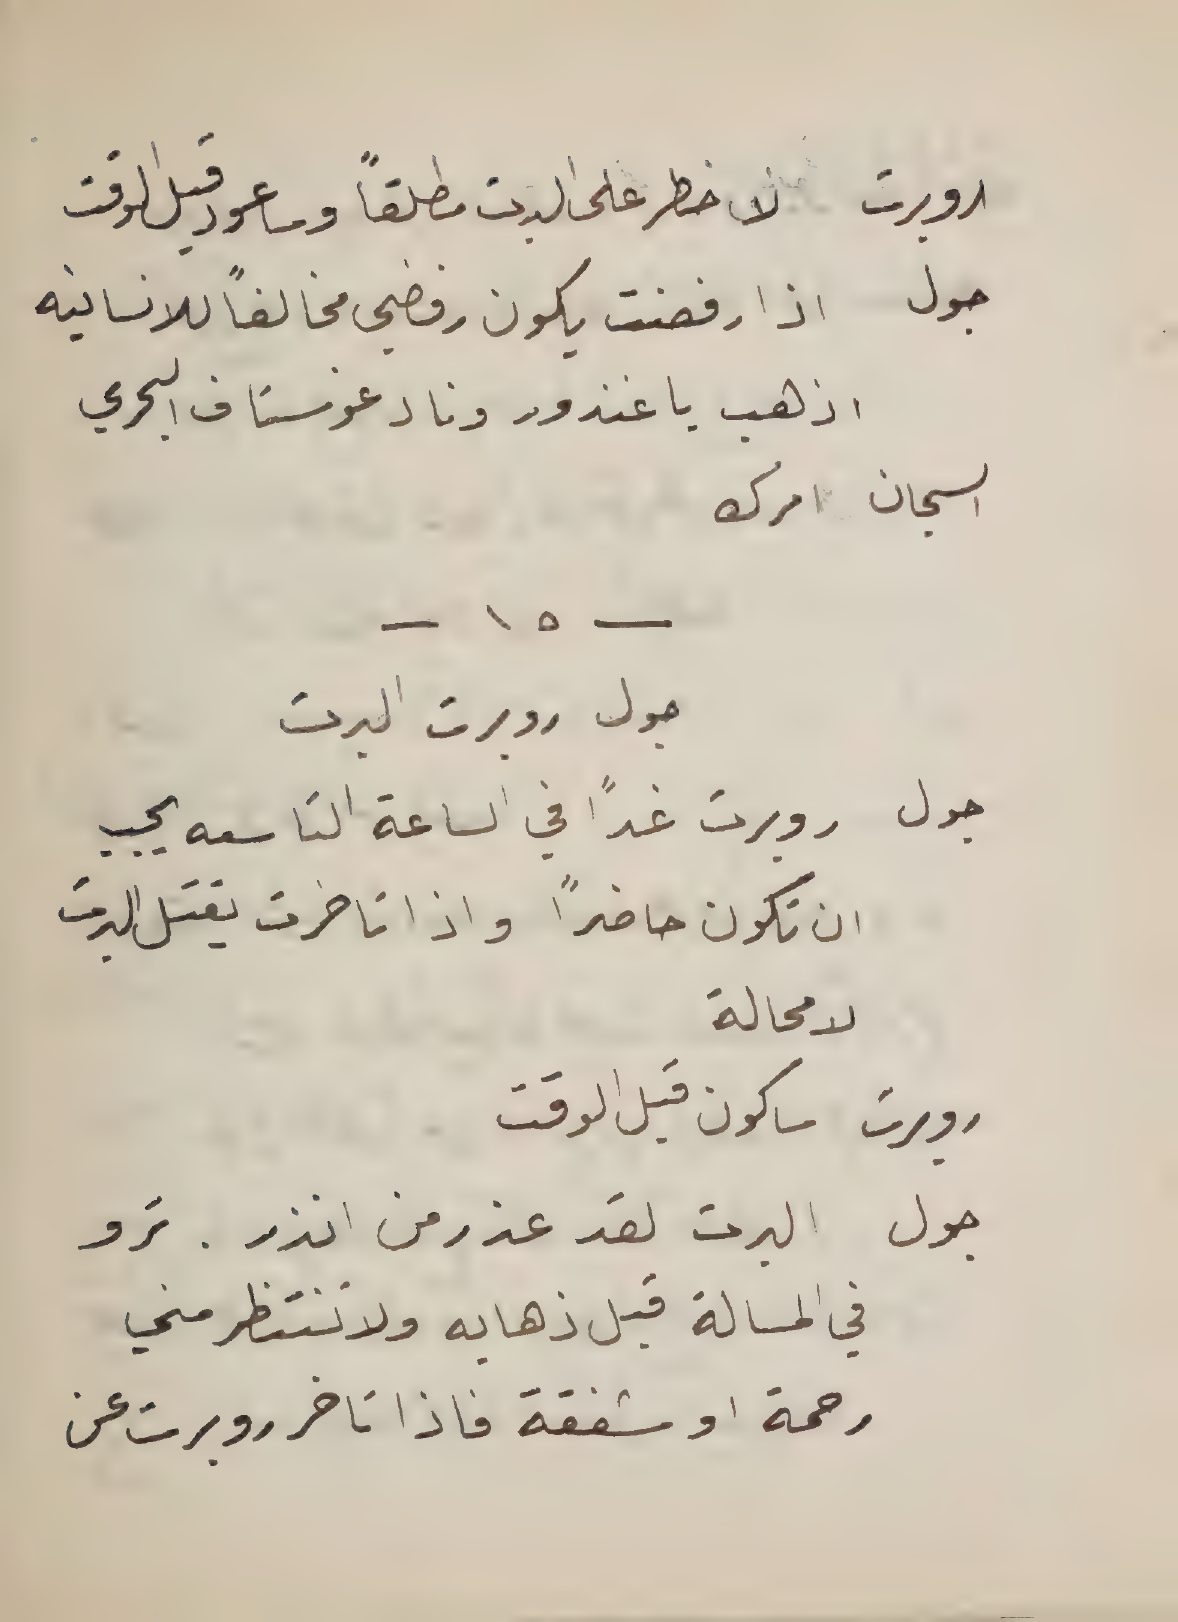 روبرت لا خطر على البرت مطلقاً وساعود قبل الوقت
جول اذا رفضت يكون رفضي مخالفاً للانسانيه
اذهب يا غندور وناد غوستاف البحري
السجان امرك
— ١٥ —
جول روبرت البرت
جول روبرت غداً في الساعة التاسعه يجب
ان تكون حاضراً واذا تاخرت يقتل البرت
لا محالة
روبرت ساكون قبل الوقت
جول البرت لقد عذر من انذر . ترو
في المسالة قبل ذهابه ولا تنتظر مني
رحمة او شفقة فاذا تاخر روبرت عن